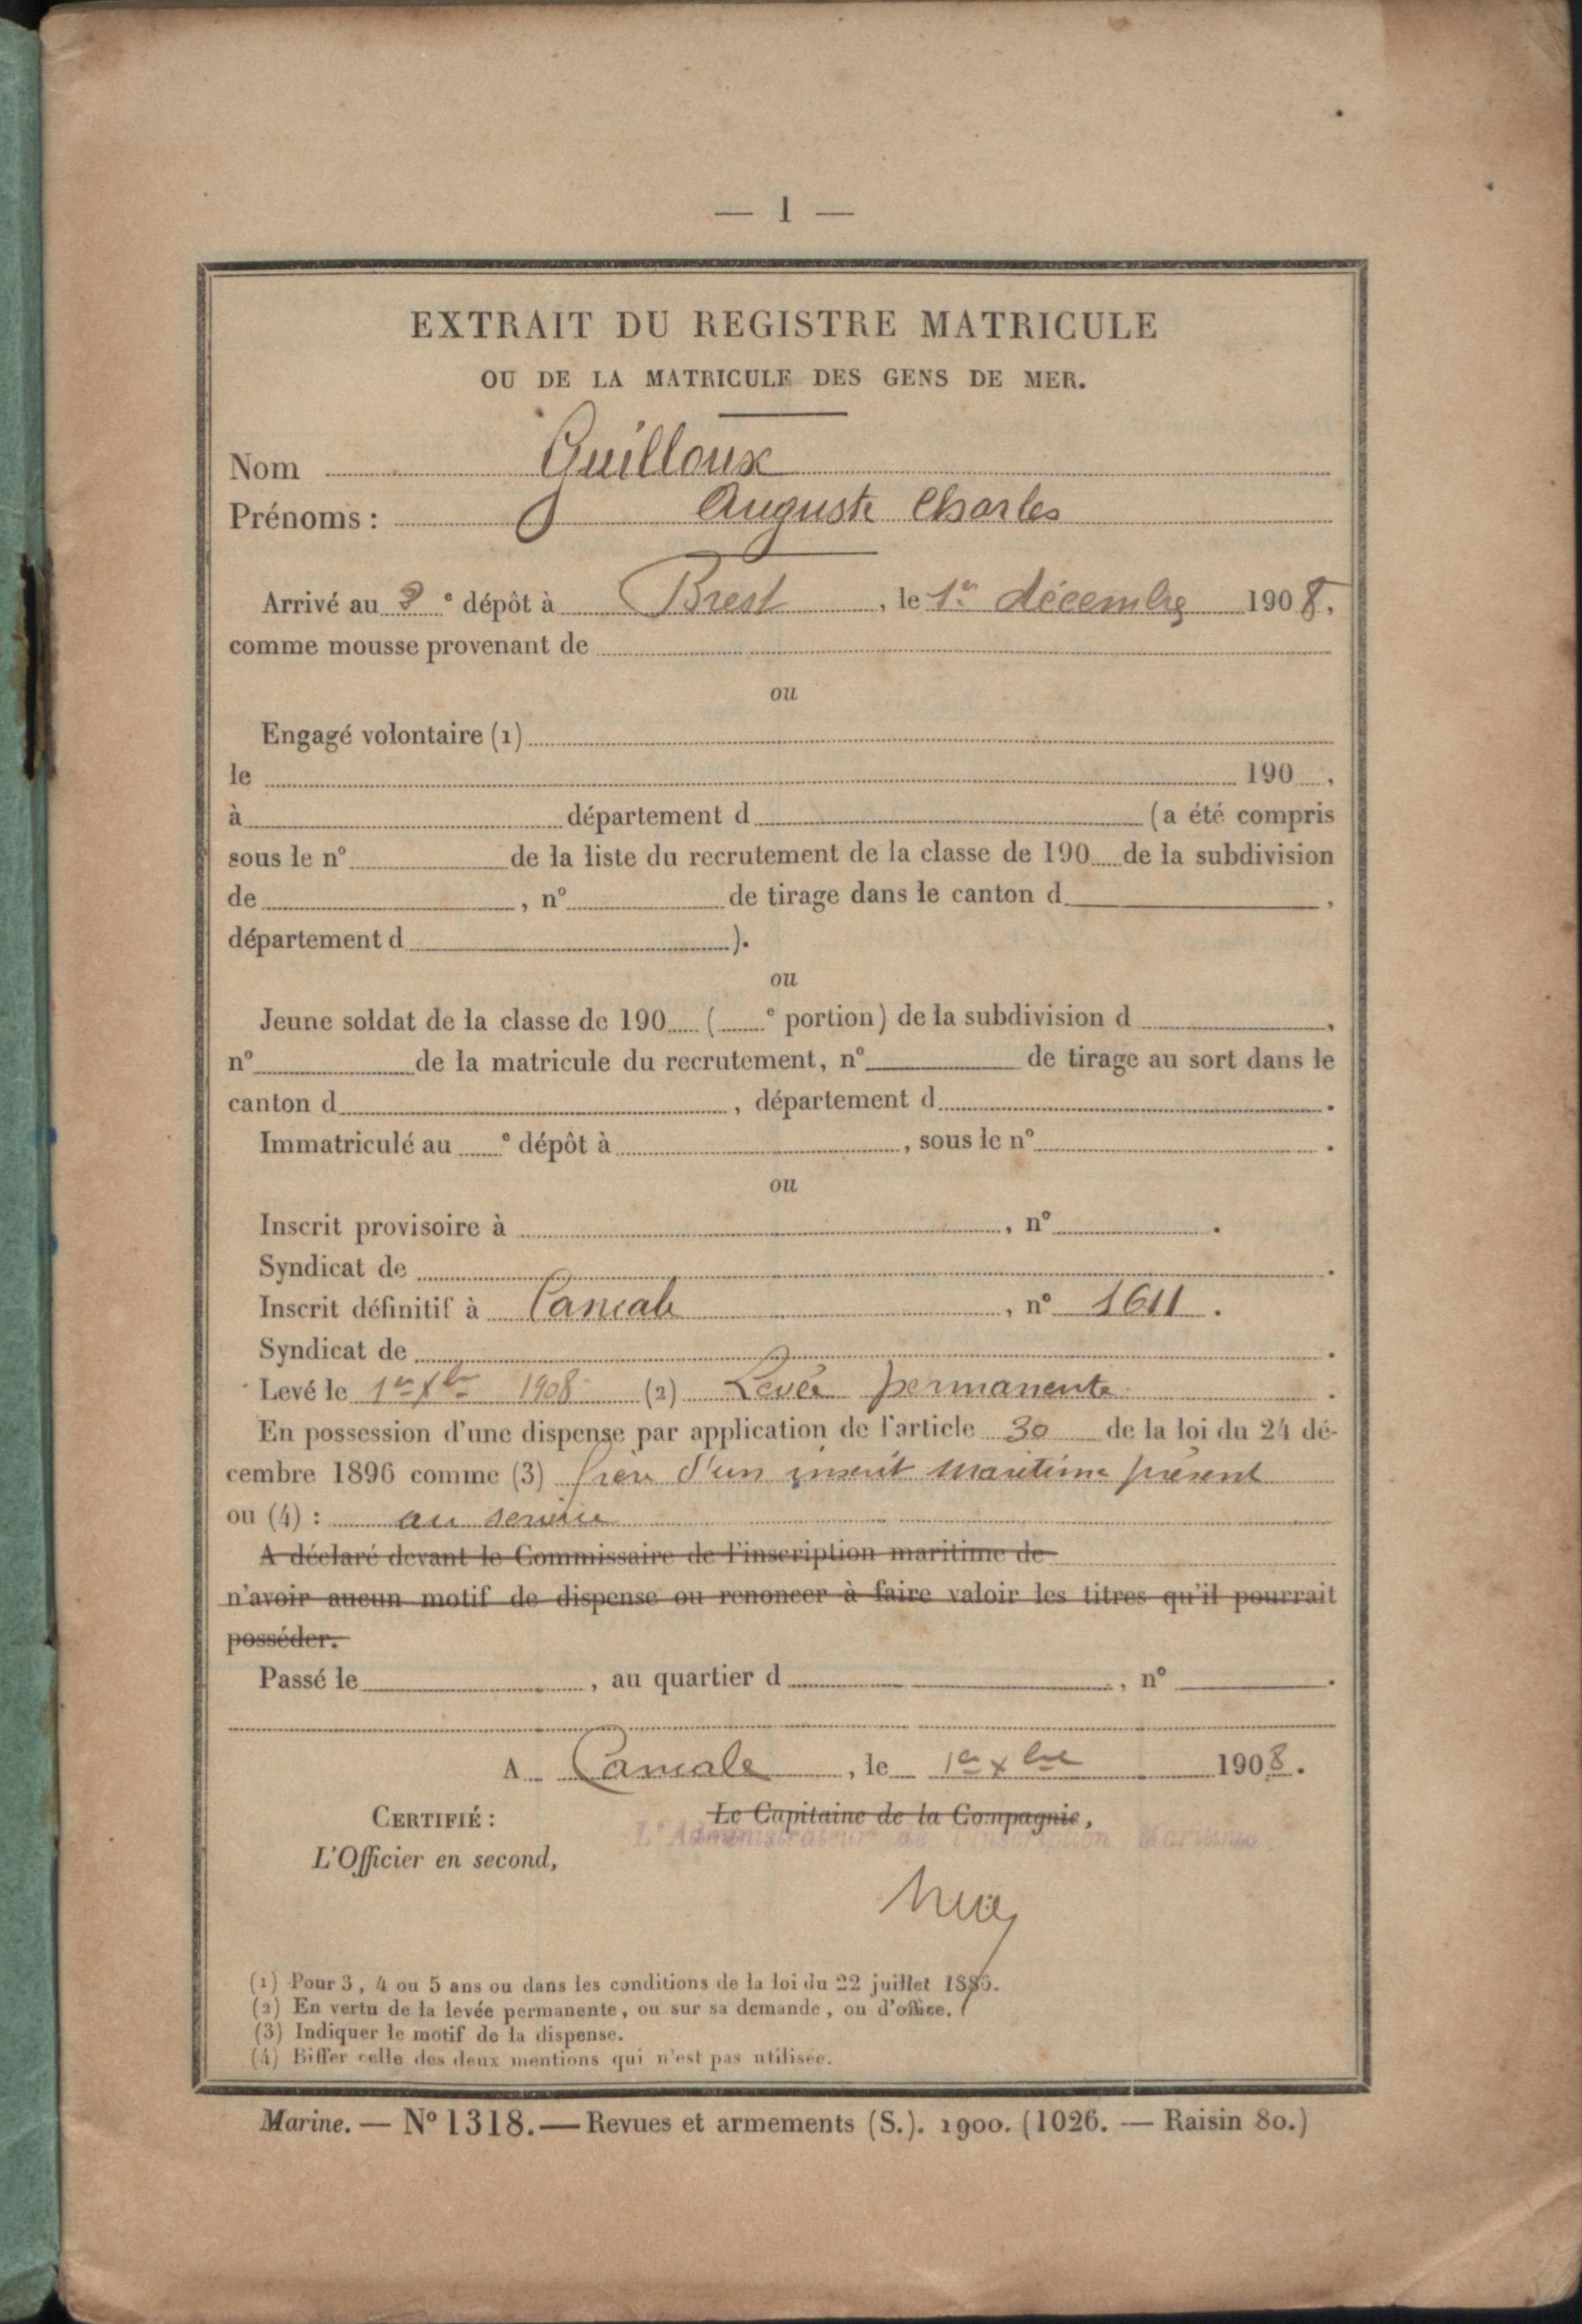 — 1 —
EXTRAIT DU REGISTRE MATRICULE
OU DE LA MATRICULE DES GENS DE MER.
Nom Guilloux
Prénoms : Auguste Charles
Arrivé au 2e dépôt à Brest, le 1er décembre 1908,
comme mousse provenant de
ou
Engagé volontaire (1)
le 190 ,
à département d (a été compris
sous le n° de la liste du recrutement de la classe de 190 de la subdivision
de , n° de tirage dans le canton d ,
département d ).
ou
Jeune soldat de la classe de 190 ( e portion) de la subdivision d ,
n° de la matricule du recrutement, n° de tirage au sort dans le
canton d , département d .
Immatriculé au e dépôt à , sous le n° .
ou
Inscrit provisoire à , n° .
Syndicat de .
Inscrit définitif à Cancale , n° 1611 .
Syndicat de .
Levé le 1er Xbre 1908 (2) Levée permanente .
En possession d'une dispense par application de l'article 30 de la loi du 24 dé-
cembre 1896 comme (3) frère d'un inscrit maritime présent
ou (4) : au service
A déclaré devant le Commissaire de l'inscription maritime de
n'avoir aucun motif de dispense ou renoncer à faire valoir les titres qu'il pourrait
posséder.
Passé le , au quartier d , n° .
A Cancale , le 1er Xbre 1908.
CERTIFIÉ : Le Capitaine de la Compagnie,
L'Administrateur de l'Inscription Maritime
L'Officier en second,
(1) Pour 3, 4 ou 5 ans ou dans les conditions de la loi du 22 juillet 1886.
(2) En vertu de la levée permanente, ou sur sa demande, ou d'office.
(3) Indiquer le motif de la dispense.
(4) Biffer celle des deux mentions qui n'est pas utilisée.
Marine. — N° 1318. — Revues et armements (S.). 1900. (1026. — Raisin 80.)